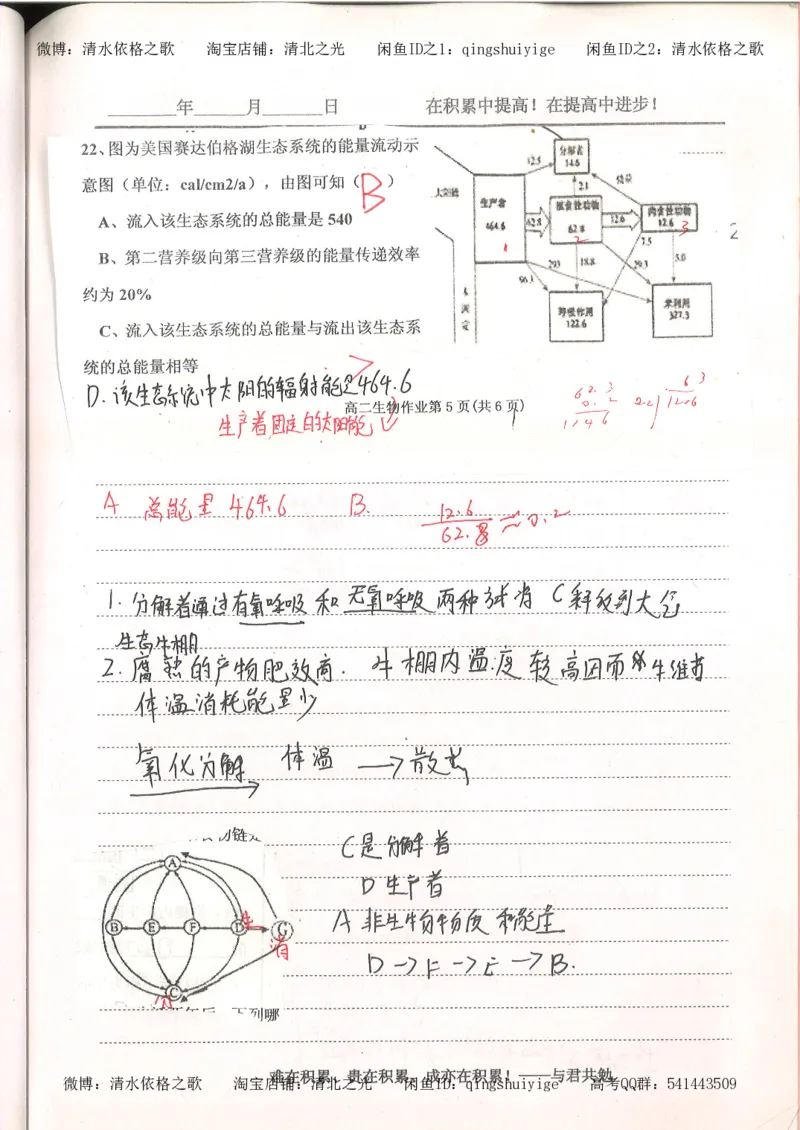 微博：清水依格之歌 淘宝店铺：清北之光 闲鱼ID之1：qingshuiyige 闲鱼ID之2：清水依格之歌
年 月 日 在积累中提高！在提高中进步！
22、图为美国赛达伯格湖生态系统的能量流动示
意图（单位：cal/cm2/a），由图可知（B）
A、流入该生态系统的总能量是 540
B、第二营养级向第三营养级的能量传递效率
约为 20%
C、流入该生态系统的总能量与流出该生态系
统的总能量相等
D.该生态系统中太阳的辐射能是464.6
高二生物作业第 5 页(共 6 页)
生产者固定的太阳能
分解者
14.6
12.5
2.1
生产者
464.6
1
62.8
植食性动物
62.8
2
12.6
肉食性动物
12.6
3
7.5
293
18.8
29.3
5.0
96.3
呼吸作用
122.6
未利用
327.3
未
固
定
2
A 总能量 464.6 B. 12.6
62.8 ≈0.2
1.分解者通过有氧呼吸和无氧呼吸两种方式将 C释放到大气
生态牛棚
2.腐熟的产物肥效高. 牛棚内温度较高因而牛维持
体温消耗能量少
氧化分解 体温 →散去
C是分解者
D生产者
A 非生物物质和能量
D→F→E→B.
A
B E F D 生 G
消
C
分
下列哪
难在积累，贵在积累，成亦在积累！——与君共勉
微博：清水依格之歌 淘宝店铺：清北之光 闲鱼ID：qingshuiyige 高考QQ群：541443509